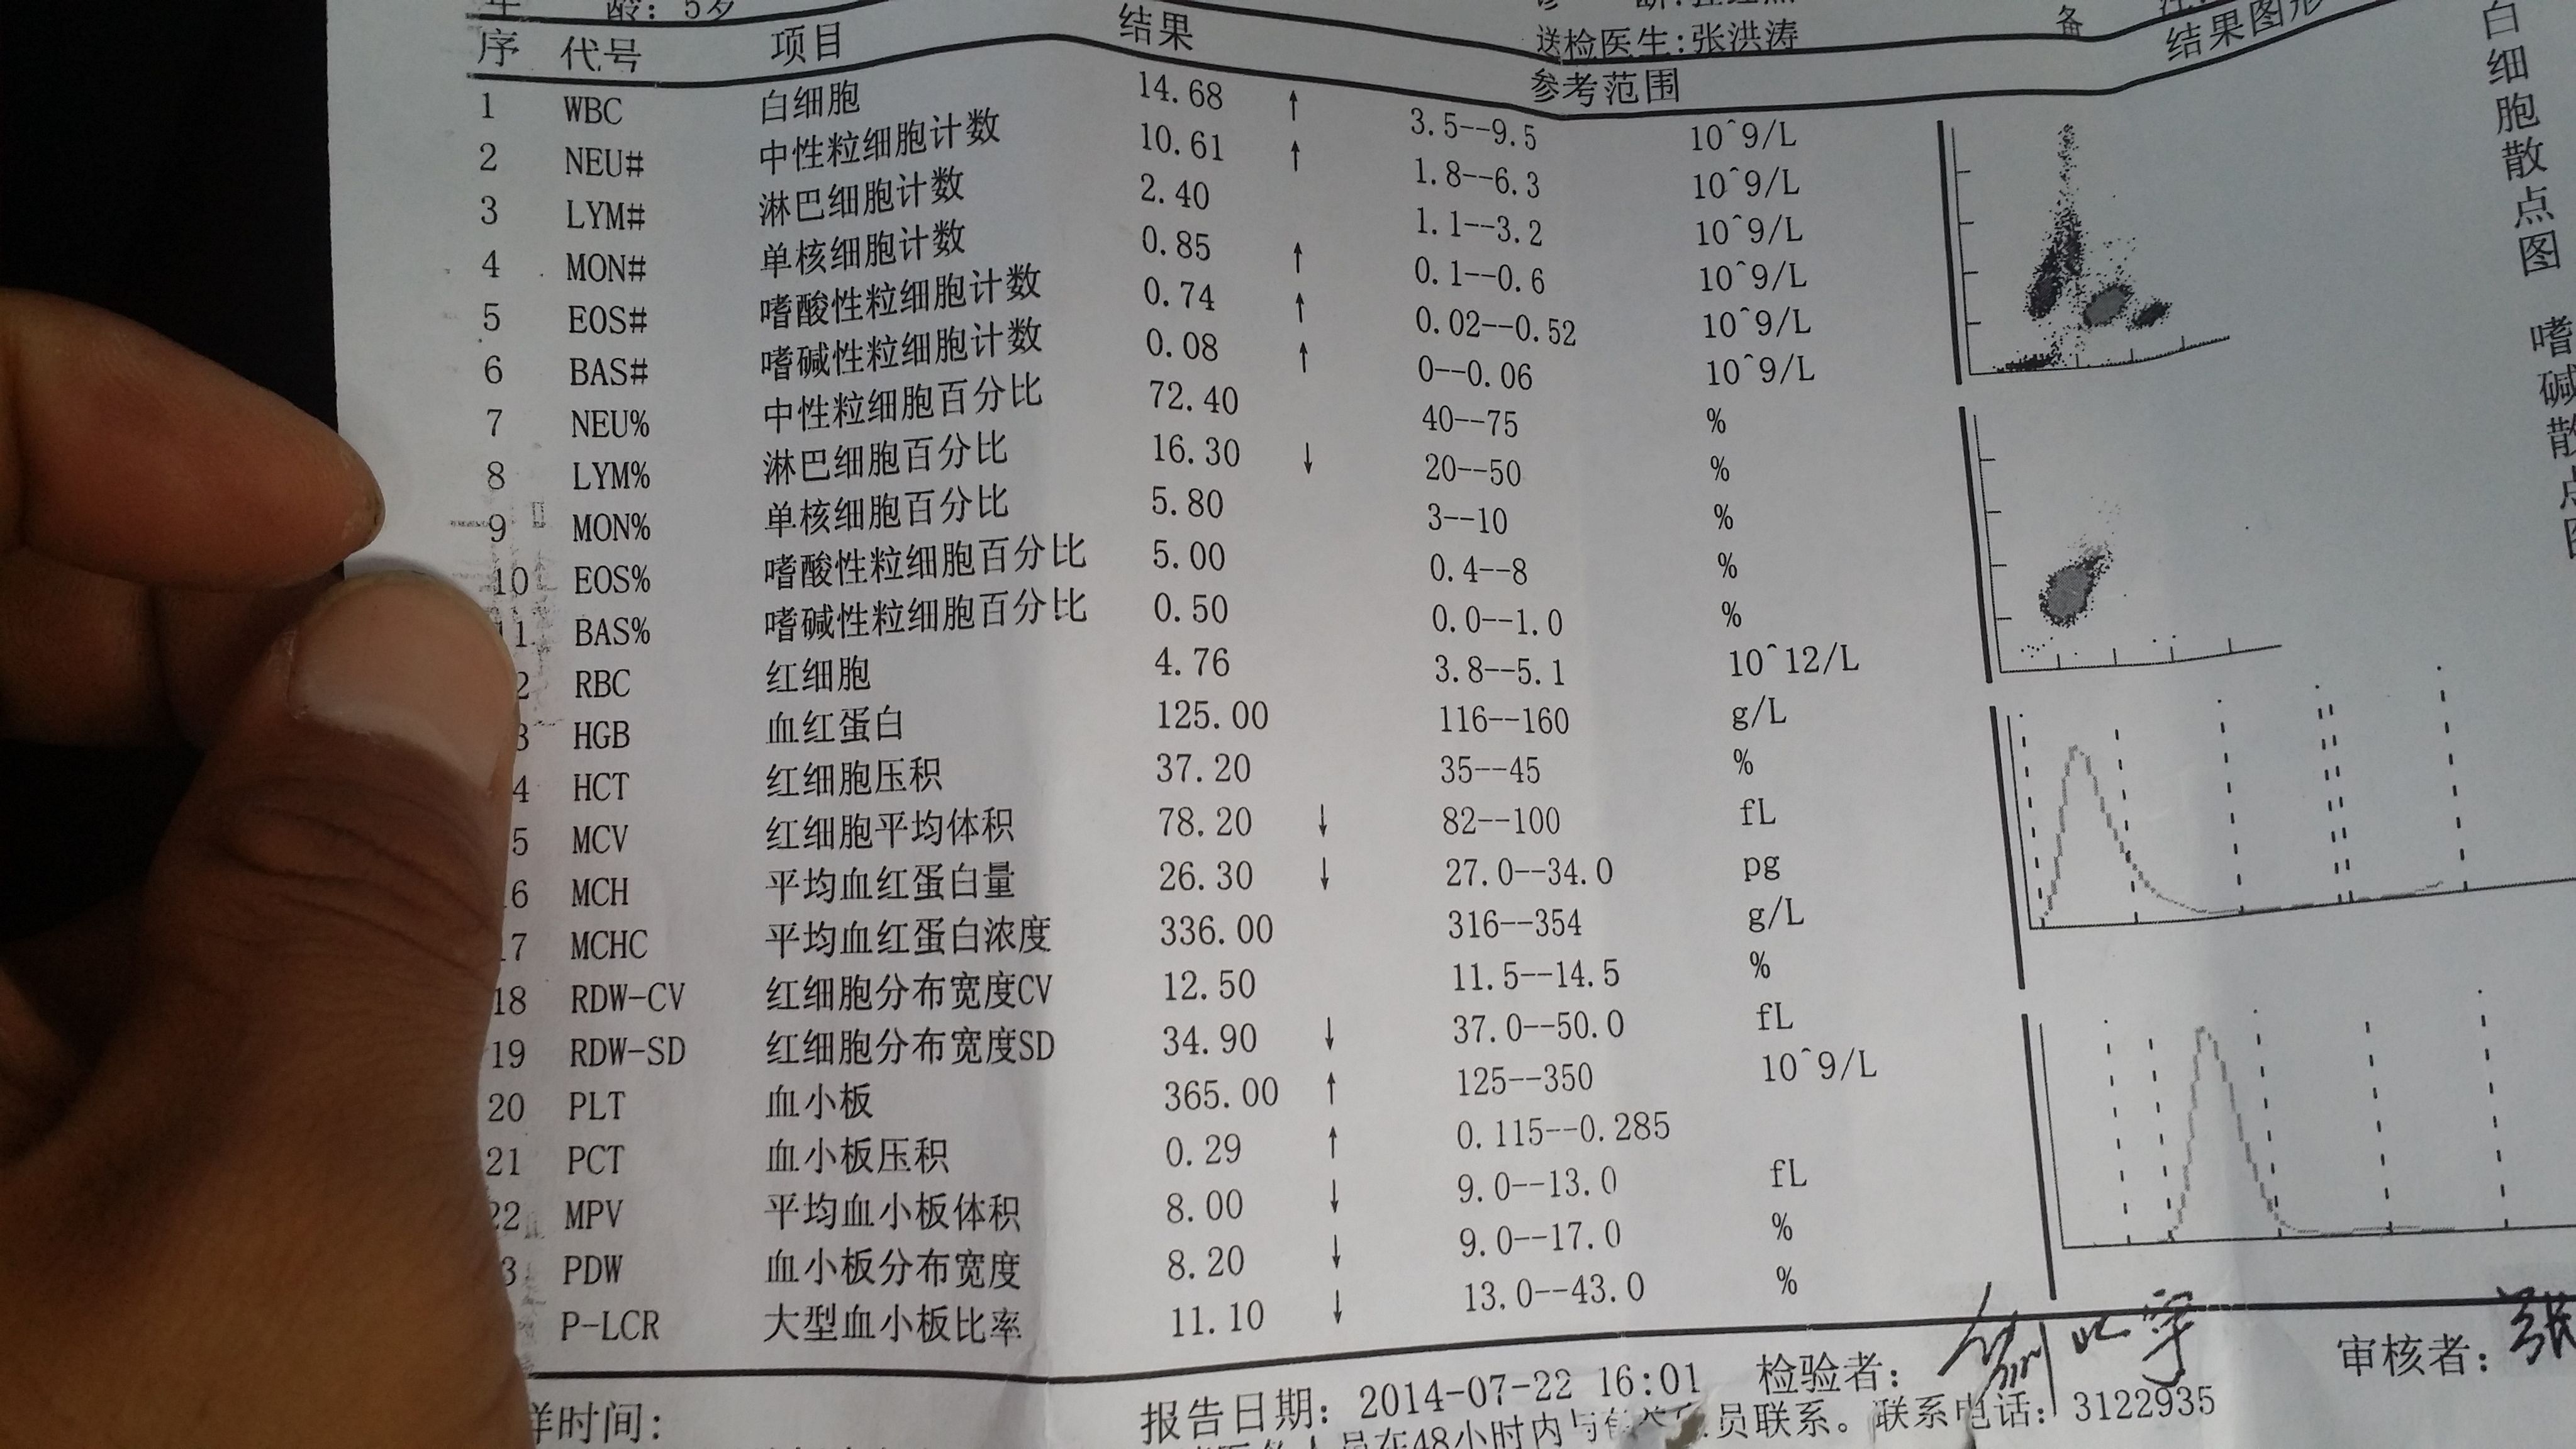 龄: 5岁
送检医生:张洪涛
序 代号 项目 结果 参考范围 结果图形
1 WBC 白细胞 14.68 ↑ 3.5--9.5 10^9/L
2 NEU# 中性粒细胞计数 10.61 ↑ 1.8--6.3 10^9/L
3 LYM# 淋巴细胞计数 2.40 1.1--3.2 10^9/L
4 MON# 单核细胞计数 0.85 ↑ 0.1--0.6 10^9/L
5 EOS# 嗜酸性粒细胞计数 0.74 ↑ 0.02--0.52 10^9/L
6 BAS# 嗜碱性粒细胞计数 0.08 ↑ 0--0.06 10^9/L
7 NEU% 中性粒细胞百分比 72.40 40--75 %
8 LYM% 淋巴细胞百分比 16.30 ↓ 20--50 %
9 MON% 单核细胞百分比 5.80 3--10 %
10 EOS% 嗜酸性粒细胞百分比 5.00 0.4--8 %
11 BAS% 嗜碱性粒细胞百分比 0.50 0.0--1.0 %
2 RBC 红细胞 4.76 3.8--5.1 10^12/L
3 HGB 血红蛋白 125.00 116--160 g/L
4 HCT 红细胞压积 37.20 35--45 %
5 MCV 红细胞平均体积 78.20 ↓ 82--100 fL
16 MCH 平均血红蛋白量 26.30 ↓ 27.0--34.0 pg
17 MCHC 平均血红蛋白浓度 336.00 316--354 g/L
18 RDW-CV 红细胞分布宽度CV 12.50 11.5--14.5 %
19 RDW-SD 红细胞分布宽度SD 34.90 ↓ 37.0--50.0 fL
20 PLT 血小板 365.00 ↑ 125--350 10^9/L
21 PCT 血小板压积 0.29 ↑ 0.115--0.285
22 MPV 平均血小板体积 8.00 ↓ 9.0--13.0 fL
3 PDW 血小板分布宽度 8.20 ↓ 9.0--17.0 %
P-LCR 大型血小板比率 11.10 ↓ 13.0--43.0 %
白细胞散点图
嗜碱散点图
样时间:
报告日期: 2014-07-22 16:01 检验者: 审核者: 张
人员在48小时内与 员联系。联系电话: 3122935